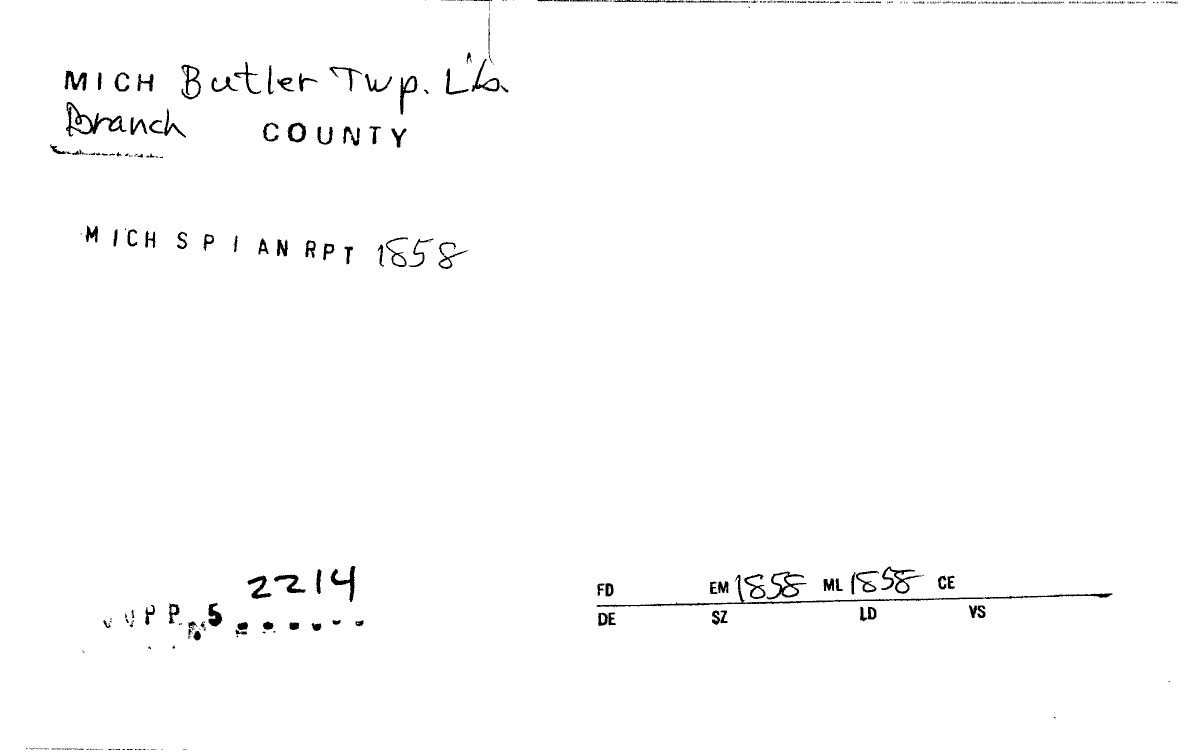 MICH Butler Twp. Lib.
Branch COUNTY
MICH S P I AN RPT 1858
2214
P P 5
FD EM 1858 ML 1858 CE
DE SZ LD VS